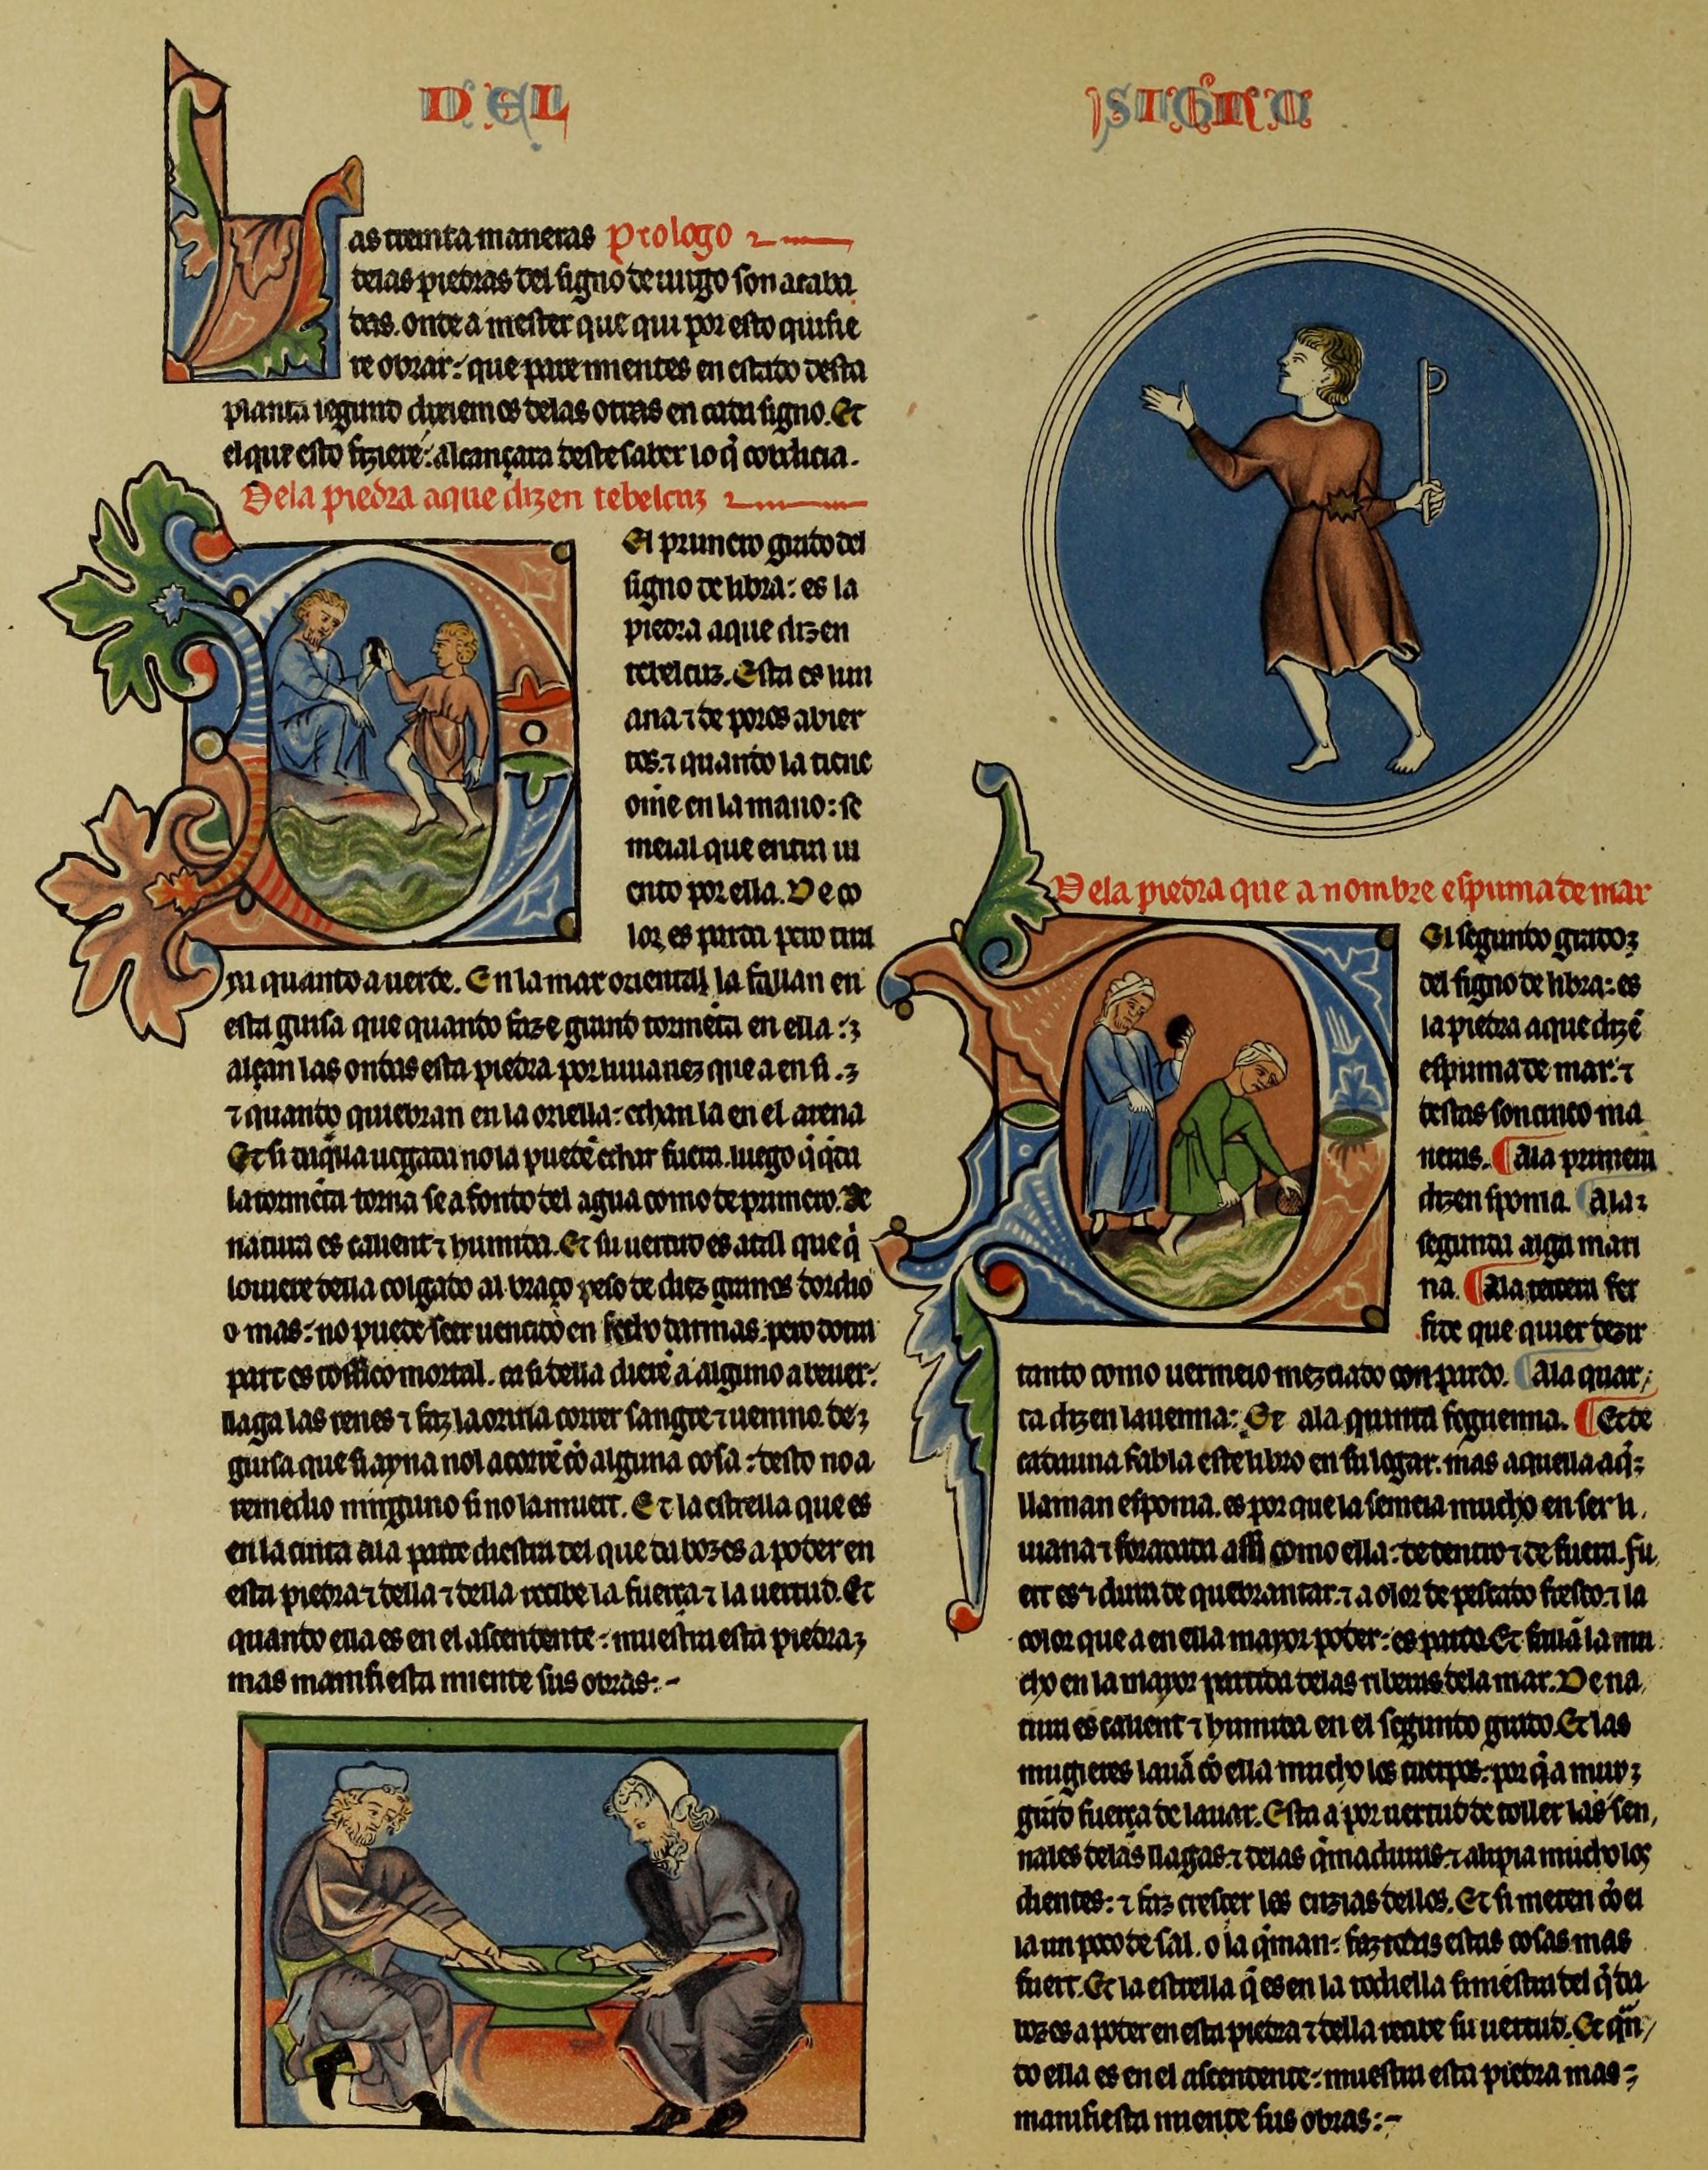 DEL
SIGNO
Las treinta maneras Prologo
delas piedras del signo de uirgo son acaba
das. onde a mester que qui por esto quisie
re obrar: que pare mientes en estado desta
planta segund dixiemos delas otras en cada signo. Et
el que esto fiziere: alcançara deste saber lo q̃ cobdicia.
Dela piedra aque dizen tebelcuz
El primero grado del
signo de libra: es la
piedra aque dizen
tebelcuz. Esta es liui
ana ⁊ de poros abier
tos. ⁊ quando la tiene
om̃e en la mano: se
meial que entra ui
ento por ella. De co
lor es parda pero tira
ya quanto a uerde. En la mar oriental la fallan en
esta guisa que quando faze grand tormẽta en ella:
alçan las ondas esta piedra por liuianez que a en si.
⁊ quando quiebran en la oriella: echan la en el arena
Et si tuq̃lla uegada no la puedẽ echar fuera. luego q̃ q̃da
la tormẽta torna se a fondo del agua como de primero. De
natura es calient ⁊ humida. Et su uertud es atal que q̃
louiere della colgado al braço peso de diez granos dordio
o mas: no puede seer uencido en fecho darmas. pero dotra
part es tossico mortal. ca si della dierẽ a alguno a beuer:
llaga las renes ⁊ faz la orina correr sangre ⁊ uenino. de
guisa que si ayna nol acorrẽ cõ alguna cosa: desto no a
remedio ninguno si no la muert. Et la estrella que es
en la cinta ala parte diestra del que da bozes a poder en
esta piedra ⁊ della ⁊ della recibe la fuerça ⁊ la uertud. Et
quando ella es en el ascendente: muestra esta piedra
mas manifiesta miente sus obras:-
Dela piedra que a nombre espuma de mar
El segundo grado
del signo de libra: es
la piedra aque dizẽ
espuma de mar. ⁊
destas son cinco ma
neras. Ala primera
dizen spoma. Ala
segunda alga mari
na. Ala tercera fer
fide que quier dezir
tanto como uermeio mezclado con pardo. Ala quar
ta dizen lauenna: Et ala quinta foguenna. Et de
cadauna fabla este libro en su logar. mas aquella aq̃
llaman espoma. es por que la semeia mucho en ser li
uiana ⁊ foradada assi como ella: de dentro ⁊ de fuera. fu
ert es ⁊ dura de quebrantar. ⁊ a olor de pescado fresco. ⁊ la
color que a en ella mayor poder: es pardo. Et fallã la mu
cho en la mayor partida delas riberas dela mar. De na
tura es calient ⁊ humida en el segundo grado. Et las
mugieres lauã cõ ella mucho los cuerpos: por q̃ a muy
grãd fuerça de lauar. Esta a por uertud de toller las sen
nales delas llagas ⁊ delas q̃maduras. ⁊ alipia mucho los
dientes: ⁊ faz crescer las enzias dellos. Et si meten cõ el
la un poco de sal. o la q̃man: faz todas estas cosas mas
fuert. Et la estrella q̃ es en la rodiella siniestra del q̃ da
bozes a poder en esta piedra ⁊ della recibe su uertud. Et quã
do ella es en el ascendente: muestra esta piedra mas
manifiesta miente sus obras:-